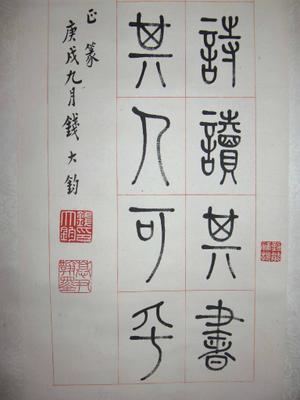 詩讀其書
其人可乎
正篆
庚戌九月錢大鈞